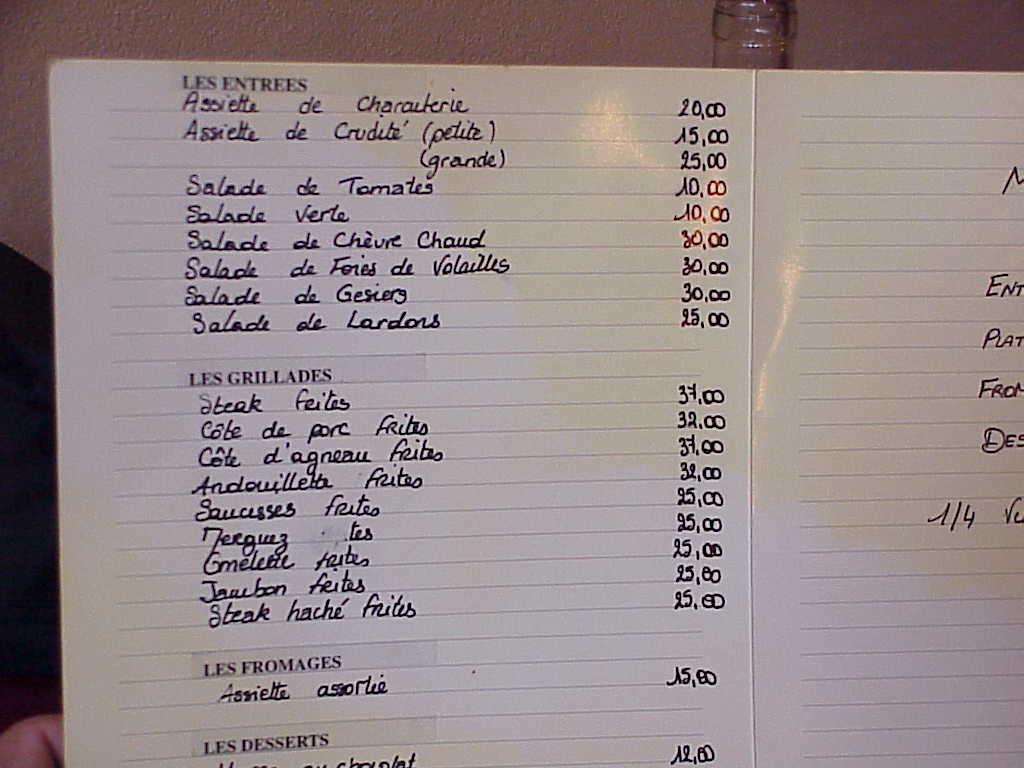 LES ENTREES
Assiette de Charcuterie 20,00
Assiette de Crudité (petite) 15,00
(grande) 25,00
Salade de Tomates 10,00
Salade Verte 10,00
Salade de Chèvre Chaud 30,00
Salade de Foies de Volailles 30,00
Salade de Gesiers 30,00
Salade de Lardons 25,00
LES GRILLADES
Steak frites 37,00
Côte de porc frites 32,00
Côte d'agneau frites 37,00
Andouillette frites 32,00
Saucisses frites 25,00
Merguez tes 25,00
Omelette frites 25,00
Jambon frites 25,00
Steak haché frites 25,00
LES FROMAGES
Assiette assortie 15,00
LES DESSERTS
au chocolat 12,00
ENT
PLAT
FROM
DES
1/4